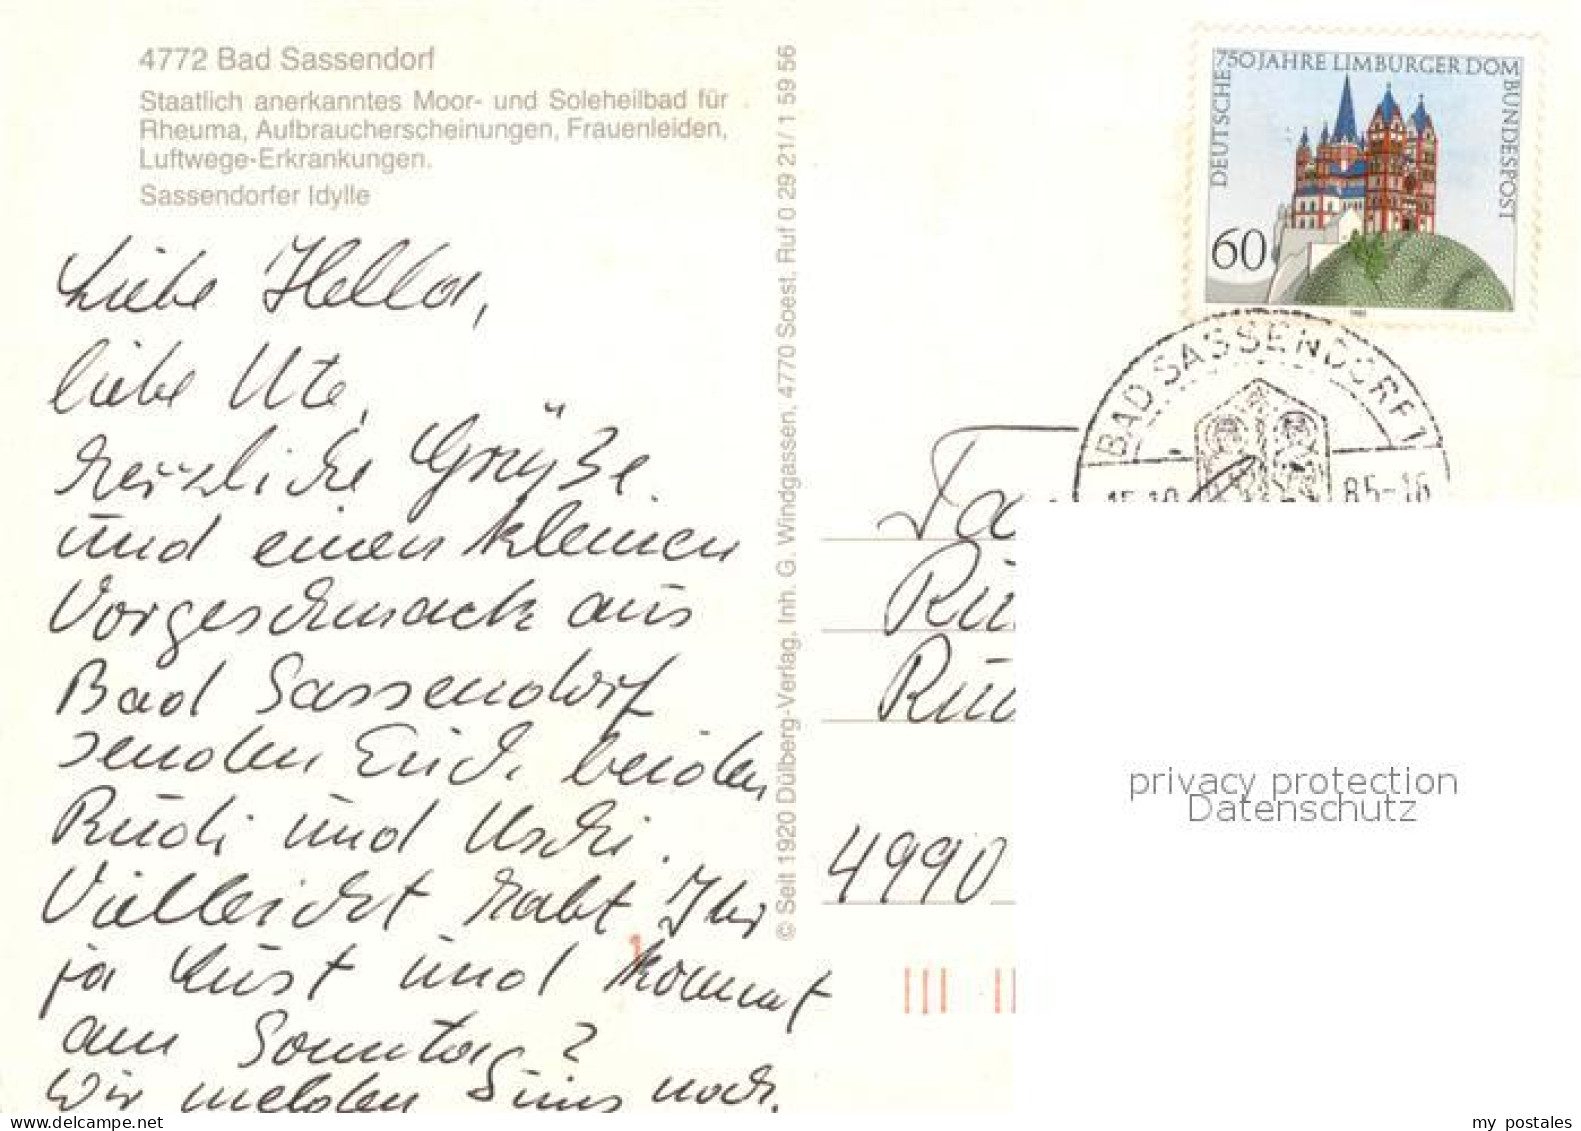 4772 Bad Sassendorf
Staatlich anerkanntes Moor- und Soleheilbad für
Rheuma, Aufbraucherscheinungen, Frauenleiden,
Luftwege-Erkrankungen.
Sassendorfer Idylle
Liebe Hella,
liebe Ute,
herzliche Grüße
und einen kleinen
Vorgeschmack aus
Bad Sassendorf
senden Euch beiden
Rudi und Uschi.
Vielleicht habt Ihr
ja Lust und kommt
am Sonntag?
Wir melden uns noch.
© Seit 1920 Dülberg-Verlag, Inh. G. Windgassen, 4770 Soest, Ruf 0 29 21/1 59 56
750 JAHRE LIMBURGER DOM
DEUTSCHE BUNDESPOST
60
BAD SASSENDORF 1
85-16
4990
privacy protection
Datenschutz
www.delcampe.net
my postales